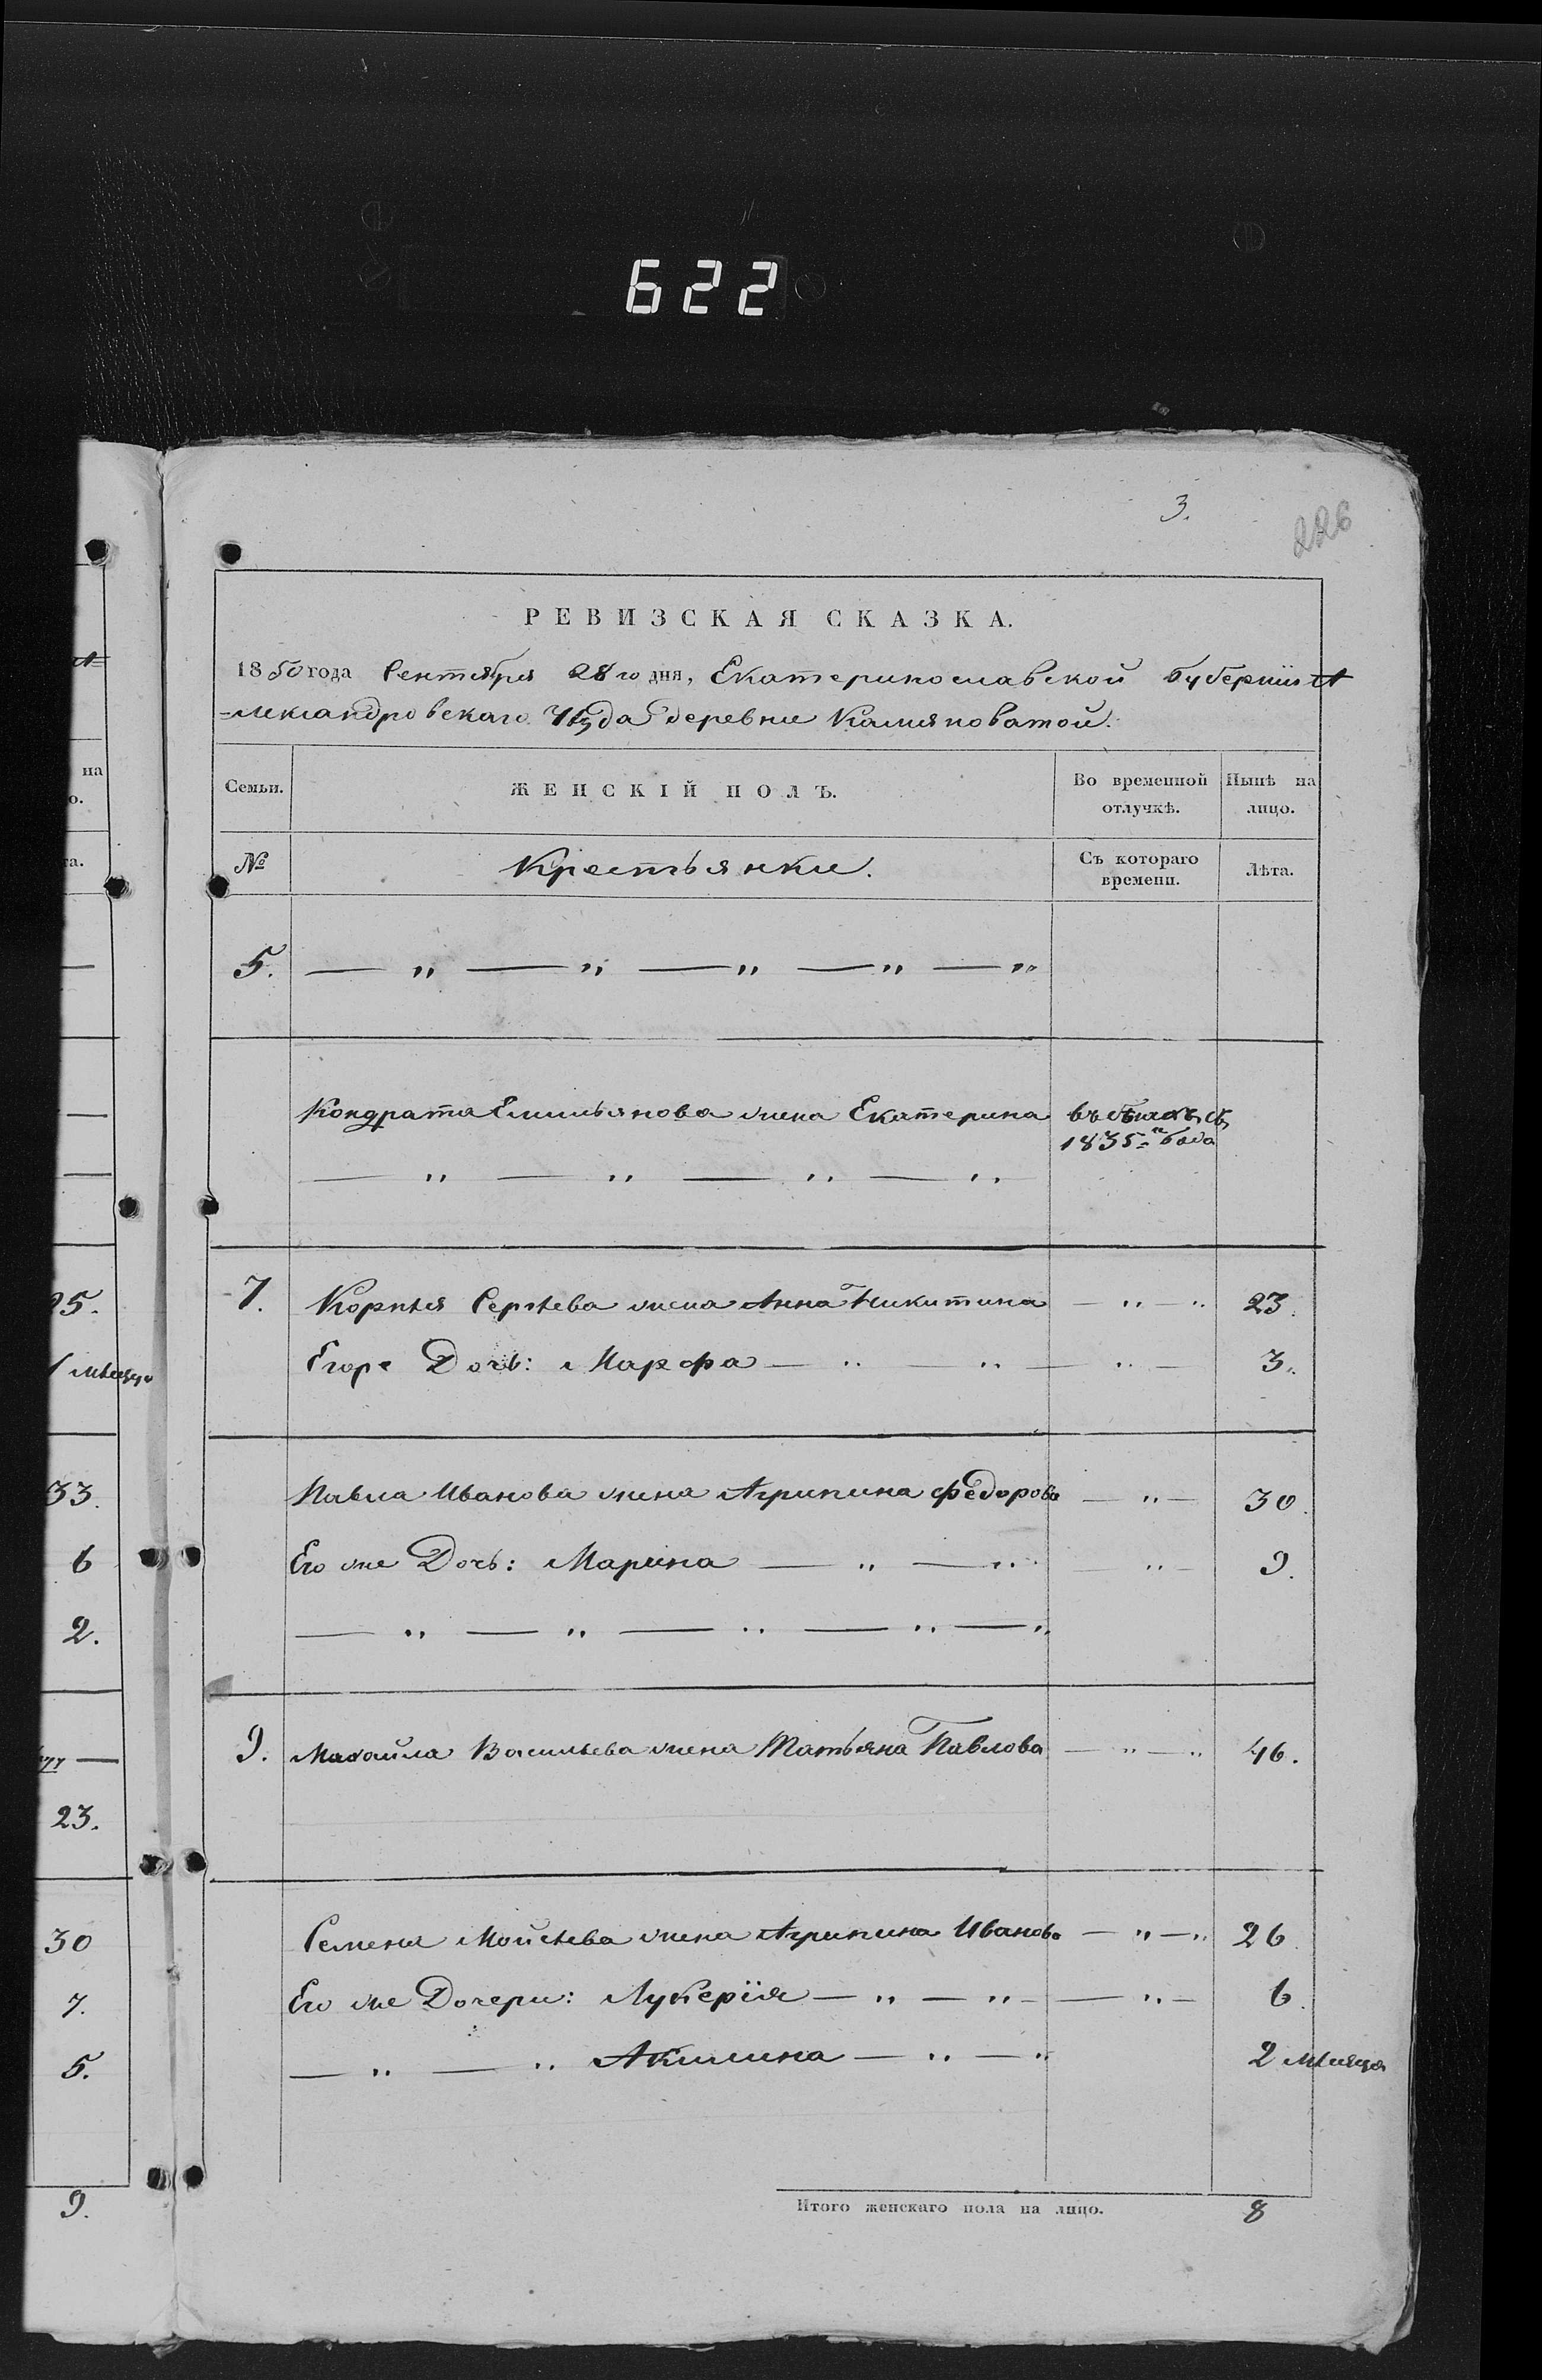 622
3.
226
РЕВИЗСКАЯ СКАЗКА.
1850 года Сентября 28 го дня, Екатеринославской Губернiи А
=лександровскаго Уѣзда деревни Камяноватой.
Семьи. ЖЕНСКIЙ ПОЛЪ. Во временной отлучкѣ. Нынѣ на лицо.
№ Крестьянки. Съ котораго времени. Лѣта.
5. — „ — „ — „ — „ — „
Кондрата Емильянова жена Екатерина въ бѣгахъ съ
1835= го года
— „ — „ — „ — „
7. Корнѣя Сергѣева жена Анна Никитина — „ — „ 23.
Егоре Дочь: Марфа — „ — „ — „ — 3.
Павла Иванова жена Агрипина Федорова — „ — 30.
Его же Дочь: Марина — „ — „ — „ — 9.
— „ — „ — „ — „ — „
9. Михайла Васильева жена Татьяна Павлова — „ — „ 46.
Семена Мойсѣева жена Агрипина Иванова — „ — „ 26.
Его же Дочери: Лукерiя — „ — „ — — „ — 6.
— „ — „ Акилина — „ — „ 2 мѣсяца
Итого женскаго пола на лицо. 8
на
о.
та.
25.
1 мѣсяцъ
33.
6
2.
23.
30
7.
5.
9.